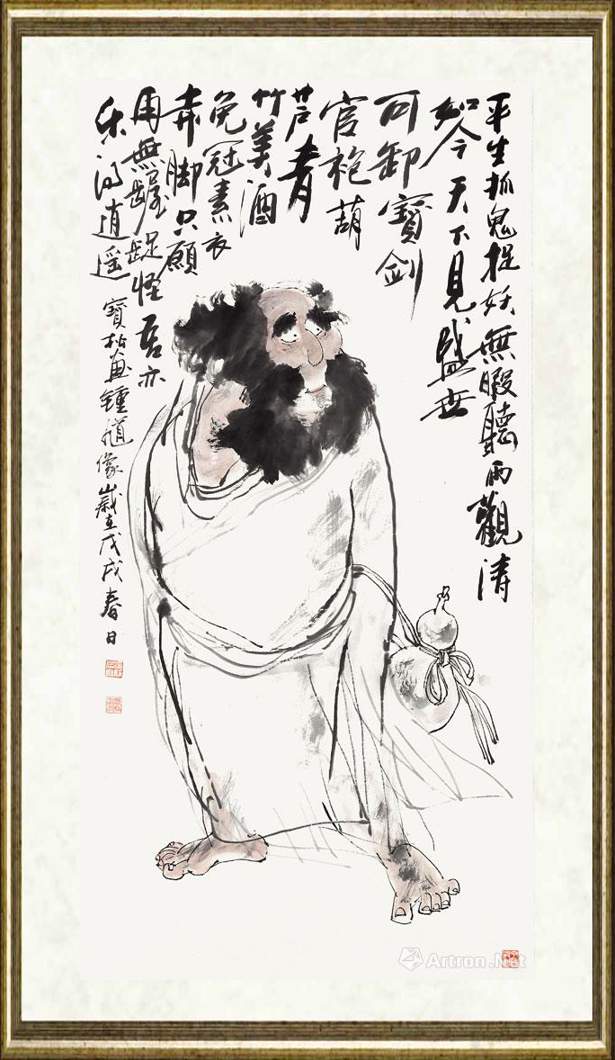 平生抓鬼捉妖無暇聽雨觀濤
如今天下見盛世
可卸寶劍
官袍葫
芦青
竹美酒
免冠素衣
赤脚只願
用無齪捉怪吾亦
乐得逍遥
寶柏画鍾馗像歲在戊戌春日
Artron.Net